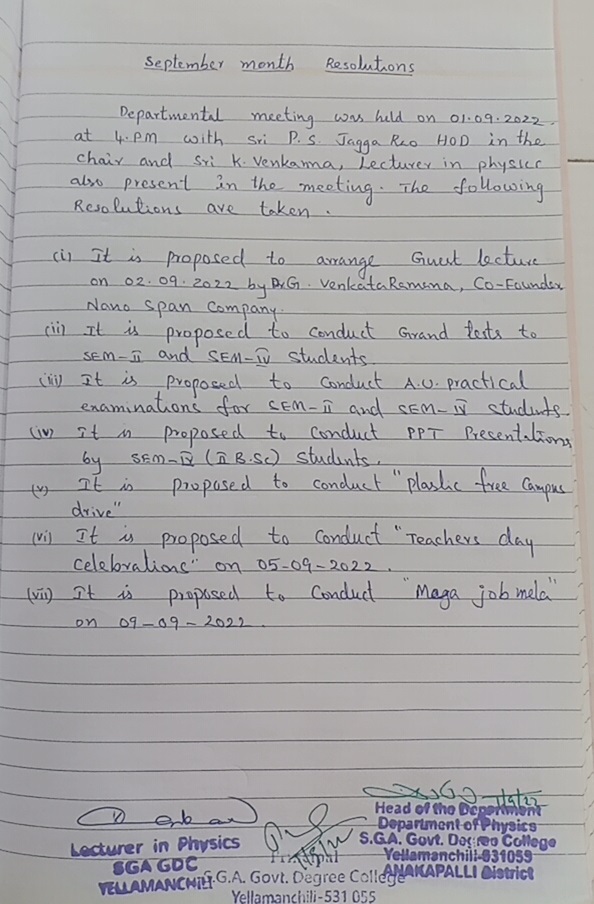 September month Resolutions
Departmental meeting was held on 01.09.2022.
at 4.PM with Sri P.S. Jagga Rao HOD in the
chair and Sri K. Venkanna, Lecturer in physics
also present in the meeting. The following
Resolutions are taken.
(i) It is proposed to arrange Guest lecture
on 02.09.2022 by Dr.G. Venkata Ramana, Co-Founder
Nano Span Company.
(ii) It is proposed to conduct Grand tests to
SEM-II and SEM-IV students.
(iii) It is proposed to conduct A.U. practical
examinations for SEM-II and SEM-IV students.
(iv) It is proposed to conduct PPT Presentations
by SEM-IV (II B.Sc) students.
(v) It is proposed to conduct "plastic free Campus
drive"
(vi) It is proposed to conduct "Teachers day
celebrations" on 05-09-2022.
(vii) It is proposed to conduct "Maga job mela"
on 09-09-2022.
Lecturer in Physics
SGA GDC
YELLAMANCHILI
S.G.A. Govt. Degree College
Yellamanchili-531 055
Head of the Department
Department of Physics
S.G.A. Govt. Degree College
Yellamanchili-531055
ANAKAPALLI District